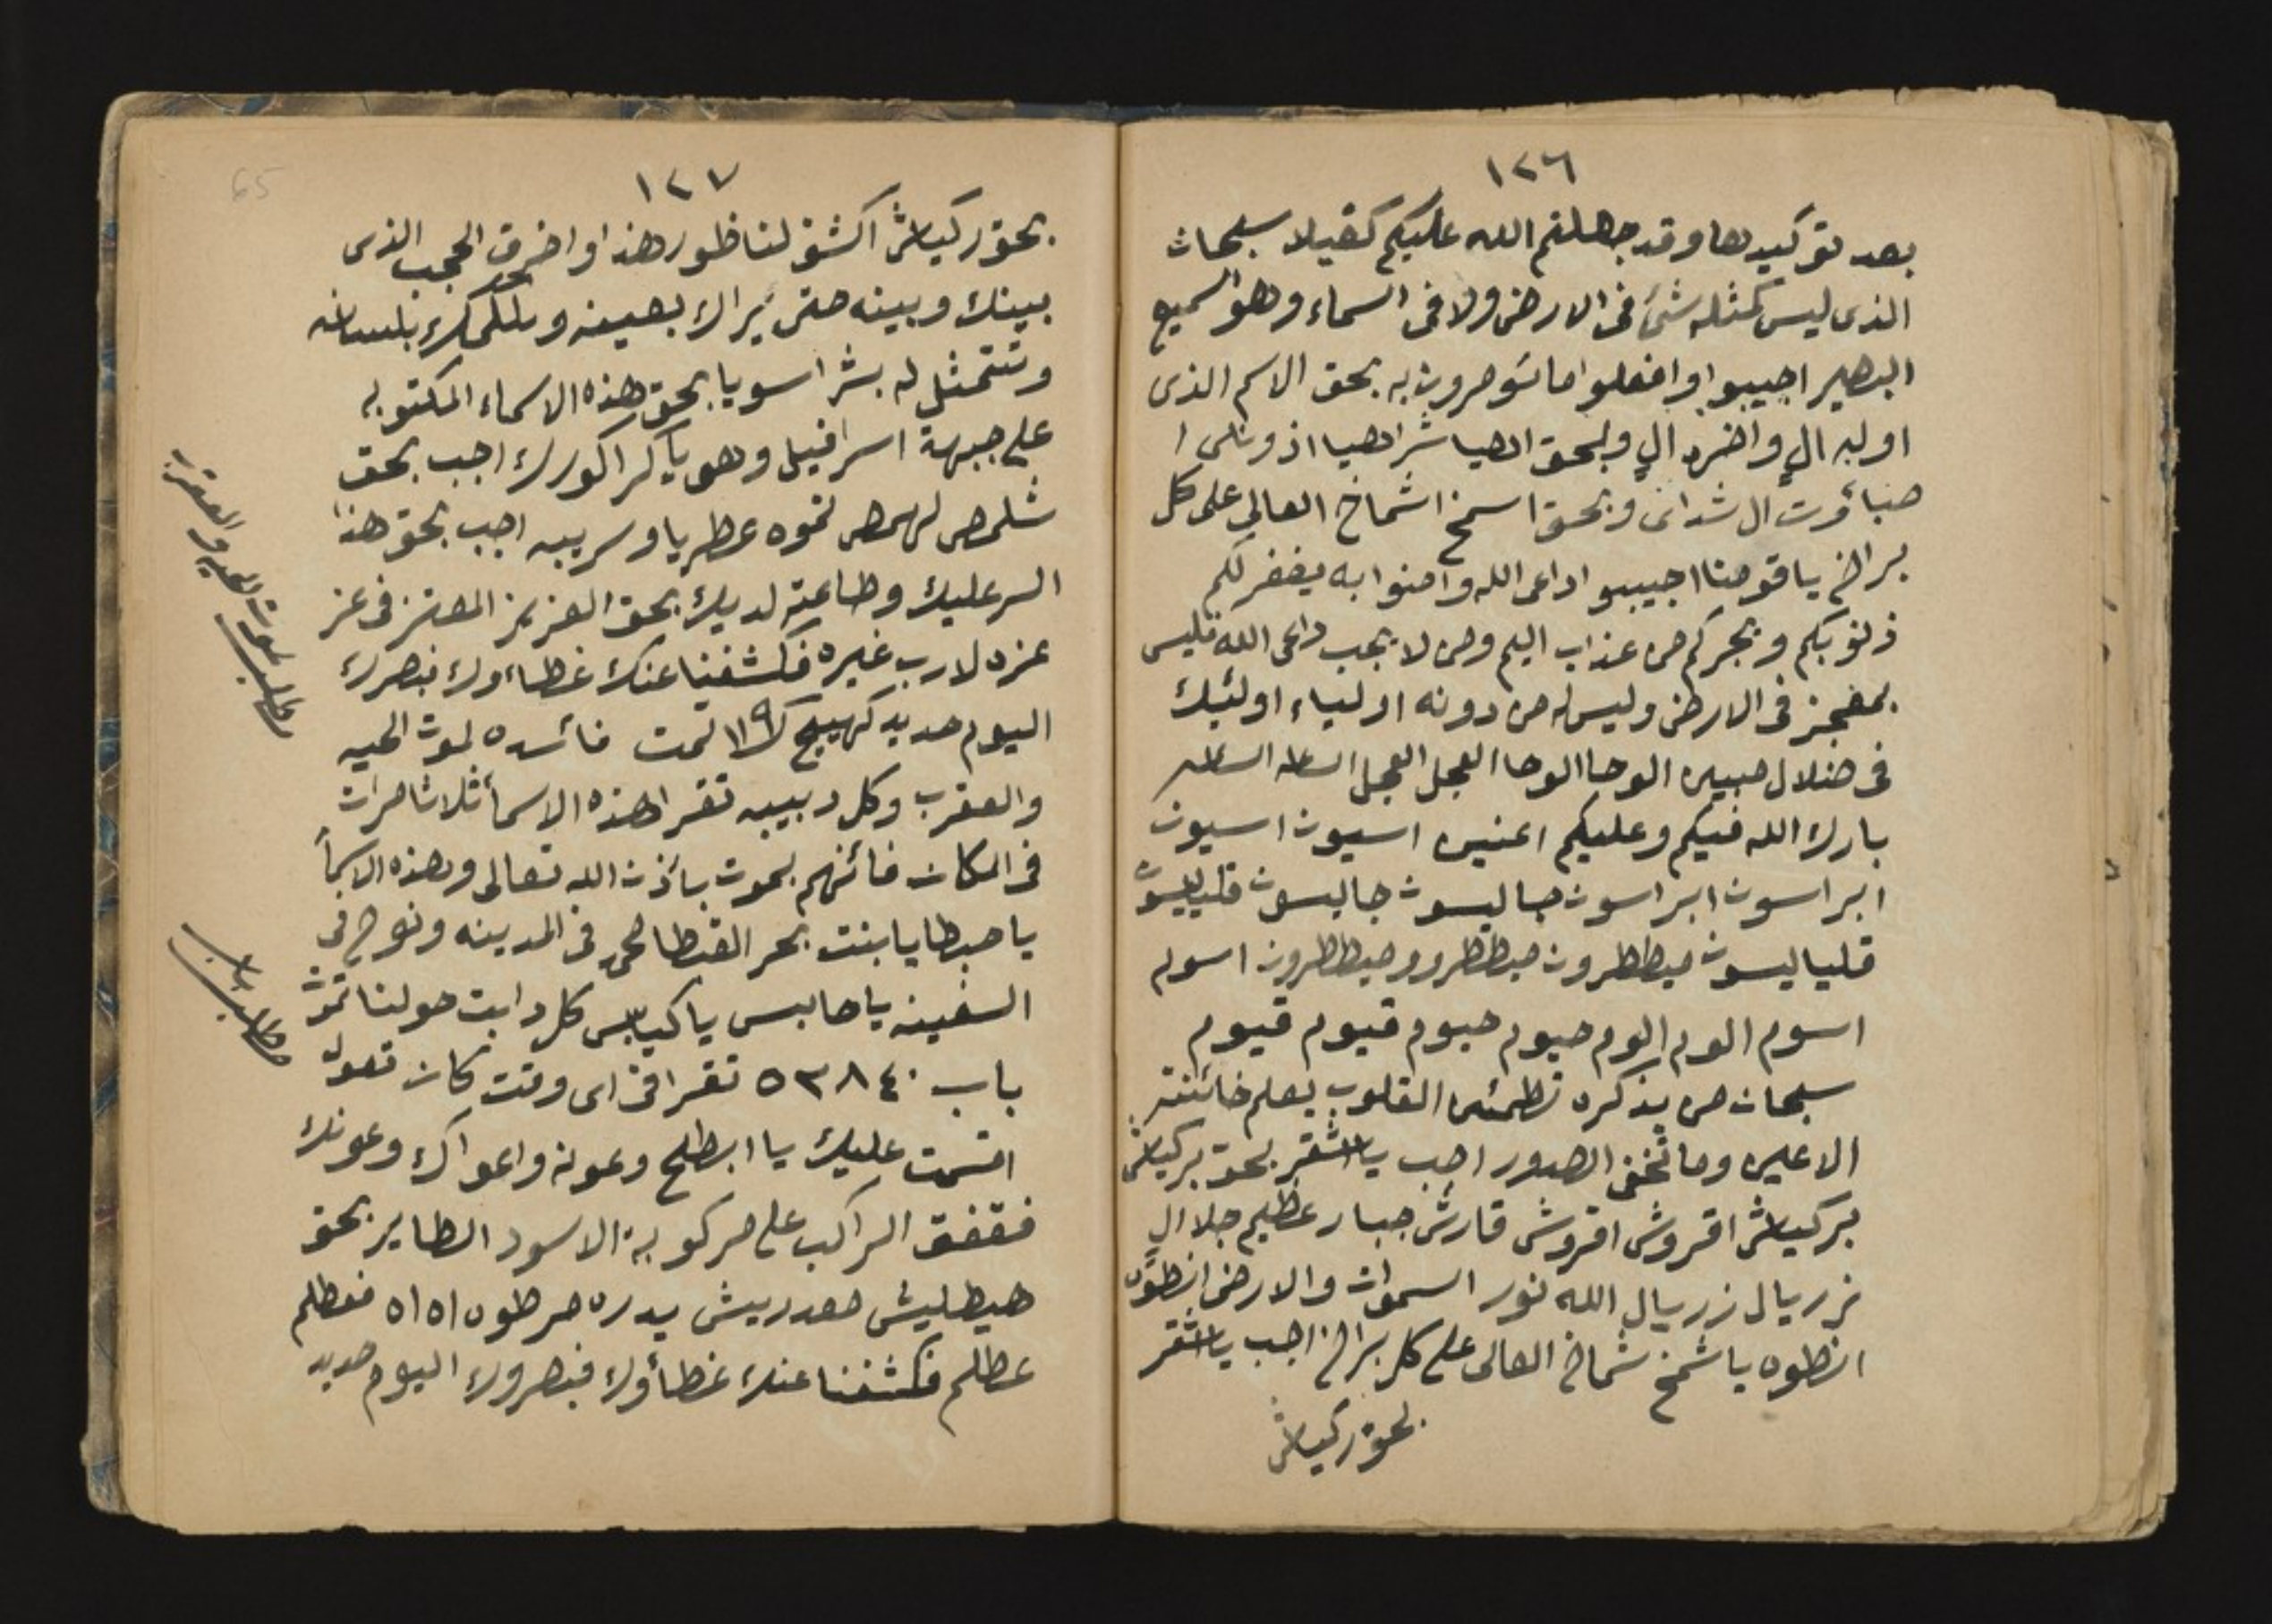 ١٢٦
بعد توكيدها وقد جعلتم الله عليكم كفيلا سبحان
الذى ليس كمثله شئ فى الارض ولا فى السماء وهو السميع
البصير اجيبوا وافعلوا ما تومرون به بحق الاسم الذى
اوله ال واخره ال وبحق اهيا شراهيا اذوناى ا
صباؤت ال شداى وبحق اسمخ اشماخ العالى على كل
براخ يا قومنا اجيببو اداعى الله وامنوا به يغفر لكم
ذنوبكم ويجركم من عذاب اليم ومن لا يجب داعى الله فليس
بمعجز فى الارض وليس له من دونه اولياء اولئك
فى ضلال مبين الوحا الوحا العجل العجل الساعه الساعه
بارك الله فيكم وعليكم اعنى اسيون اسيون
ابراسون ابراسون جاليسون جاليسون
قلياليسون ميططرون ميططرون وميططرون اسوم
اسوم الوم الوم حيوم حيوم قيوم قيوم
سبحان من بذكره تطمئن القلوب يعلم خائنة
الاعين وما تخفى الصدور اجب يا اشقر بحق بركياش
بركياش اقروش اقروش قارش جبار عظيم جلا ال
زريال زريال الله نور السموات والارض انطوه
انطوه يا شمخ شماخ العالى على كل براخ اجب يا اشقر
بحق ركياش
١٢٧
بحق ركياش اكشف لناظور هذا واخرق الحجب الذى
بينك وبينه حتى يراك بعينه ويكلمك بلسانه
وتتمثل له بشرا سويا بحق هذه الاسماء المكتوبه
على جبهة اسرافيل وهو ياكراكورك اجب بحق
شلمص لهمص نموه عطريا وسريبه اجب بحق هذا
السر عليك وطاعته لديك بحق العزيز المعتز فى عز
عزه لارب غيره فكشفنا عنك غطاءوك فبصرك
اليوم حديد كهيج ١١٩ تمت فائده لموت الحيه
والعقرب وكل دبيبه تقرا هذه الاسمأ ثلاثا مرات
فى المكان فائنهم بموت باذن الله تعالى وهذه الاسمأ
يا صبطايا بنت بحر القبطا لحى فى المدينه ونوح فى
السفينه يا حابس ياكيابس كل دابت حولنا تموت
باب ٥٣٨٤٠ تقرا فى اى وقت كان تقول
اقسمت عليك يا ابطلح وعونه واعواك وعونك
فقفق الراكب على مركوبة الاسود الطاير بحق
هيطليش معدريش يدره مرطوه اه اه فعطلم
عطلم فكشفنا عنك غطأوك فبصروك اليوم حديد
مطلب لموت الحيه والعقرب
مطلب باب
65